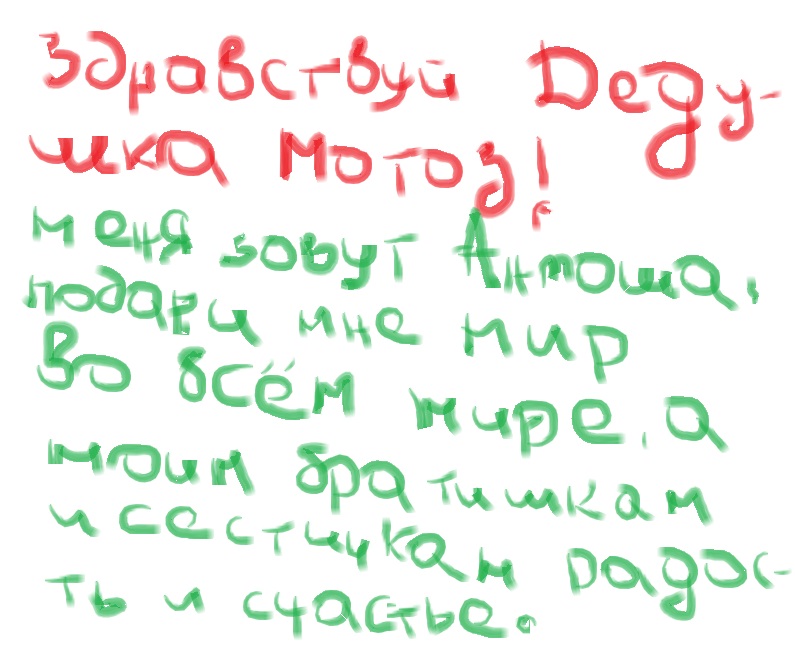 здравствуй Деду-
шка Мотоз!
меня зовут Антоша,
подари мне мир
во всём мире, а
моим братишкам
и сестичкам радос-
ть и счастье.